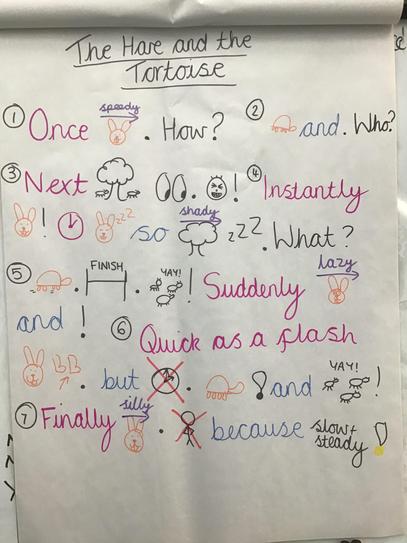 The Hare and the
Tortoise
speedy
① Once . How? ② and. Who?
③ Next . ! ④ Instantly
shady
! zzz so zzz. What?
⑤ . FINISH . YAY! ! Suddenly lazy
and ! ⑥
Quick as a flash
. but ! and YAY! !
⑦ Finally silly . because slow + steady !